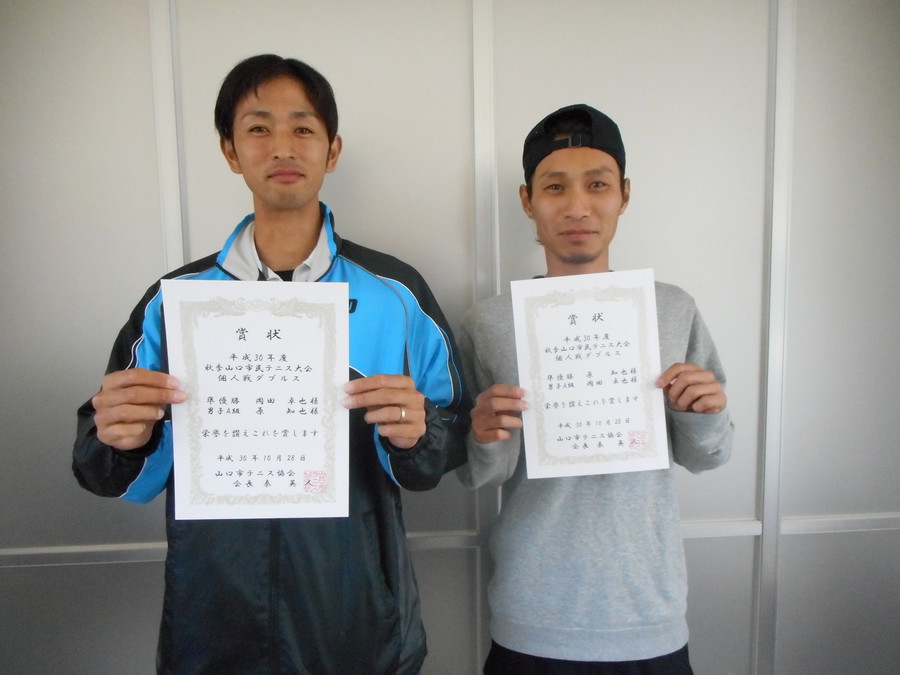 賞状
平成30年度
秋季山口市民テニス大会
個人戦ダブルス
準優勝 岡田 卓也様
男子A級 原 知也様
栄誉を讃えこれを賞します
平成30年10月28日
山口市テニス協会
会長 泰 英人
賞状
平成30年度
秋季山口市民テニス大会
個人戦ダブルス
準優勝 原 知也様
男子A級 岡田 卓也様
栄誉を讃えこれを賞します
平成30年10月28日
山口市テニス協会
会長 泰 英